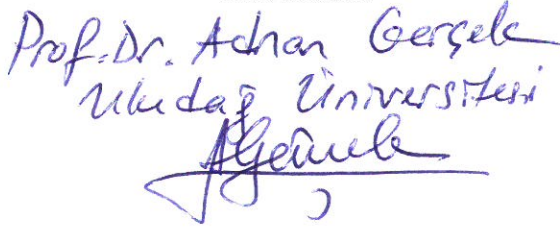 Prof. Dr. Adnan Gerçek
Uludağ Üniversitesi
AGerçek